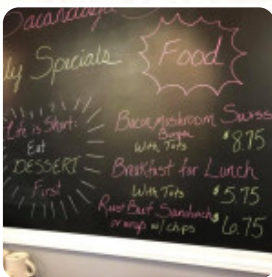 ly Specials
Food
Life is Short:
Eat
DESSERT
First
Bacon Mushroom Swiss
Burger
With Tots $8.75
Breakfast for Lunch
With Tots $5.75
Roast Beef Sandwich
or wrap w/ chips $6.75